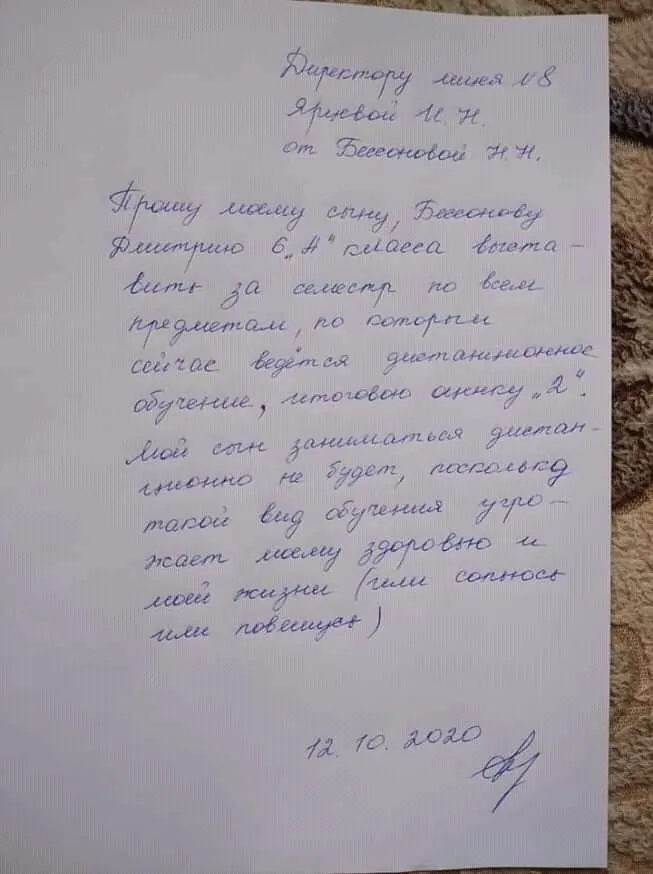 Директору лицея №8
Ярцевой И. Н.
от Бессоновой Н. Н.
Прошу моему сыну, Бессонову
Дмитрию 6 „А“ класса выста-
вить за семестр по всем
предметам, по которым
сейчас ведётся дистанционное
обучение, итоговою оценку „2“.
Мой сын заниматься дистан-
ционно не будет, поскольку
такой вид обучения угро-
жает моему здоровью и
моей жизни (или сопьюсь
или повешусь)
12. 10. 2020